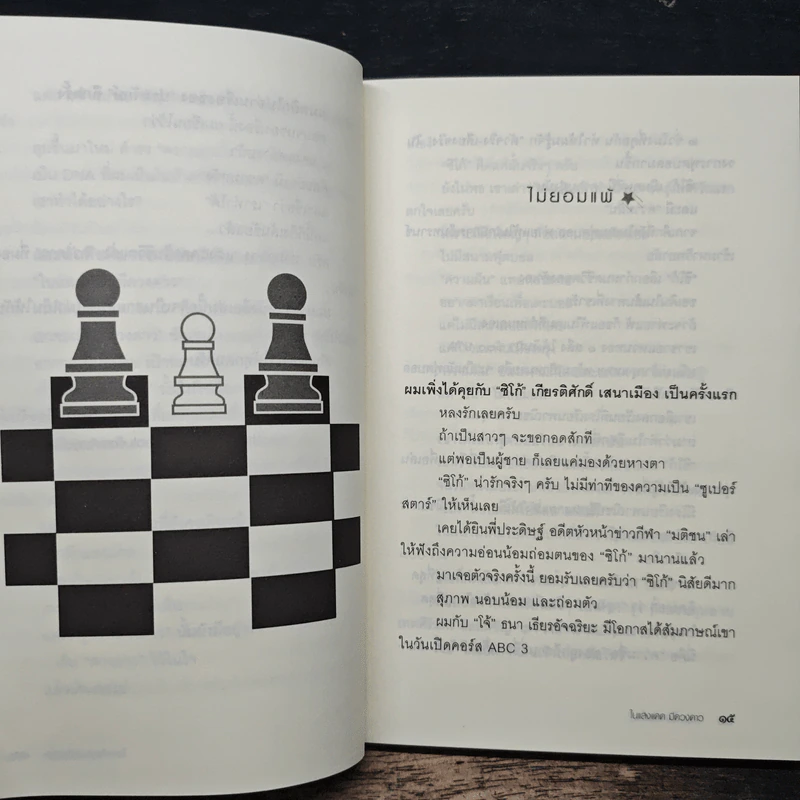 ไม่ยอมแพ้
ผมเพิ่งได้คุยกับ "ซิโก้" เกียรติศักดิ์ เสนาเมือง เป็นครั้งแรก
หลงรักเลยครับ
ถ้าเป็นสาวๆ จะขอกอดสักที
แต่พอเป็นผู้ชาย ก็เลยแค่มองด้วยหางตา
"ซิโก้" น่ารักจริงๆ ครับ ไม่มีท่าทีของความเป็น "ซูเปอร์
สตาร์" ให้เห็นเลย
เคยได้ยินพี่ประดิษฐ์ อดีตหัวหน้าข่าวกีฬา "มติชน" เล่า
ให้ฟังถึงความอ่อนน้อมถ่อมตนของ "ซิโก้" มานานแล้ว
มาเจอตัวจริงครั้งนี้ ยอมรับเลยครับว่า "ซิโก้" นิสัยดีมาก
สุภาพ นอบน้อม และถ่อมตัว
ผมกับ "โจ้" ธนา เธียรอัจฉริยะ มีโอกาสได้สัมภาษณ์เขา
ในวันเปิดคอร์ส ABC 3
ในแสงแดด มีดวงดาว ๑๕